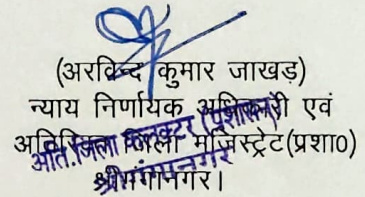 (अरविन्द कुमार जाखड़)
न्याय निर्णायक अधिकारी एवं
अतिरिक्त जिला मजिस्ट्रेट(प्रशा0)
अति.जिला कलक्टर (प्रशासन)
श्रीगंगानगर
श्रीगंगानगर।